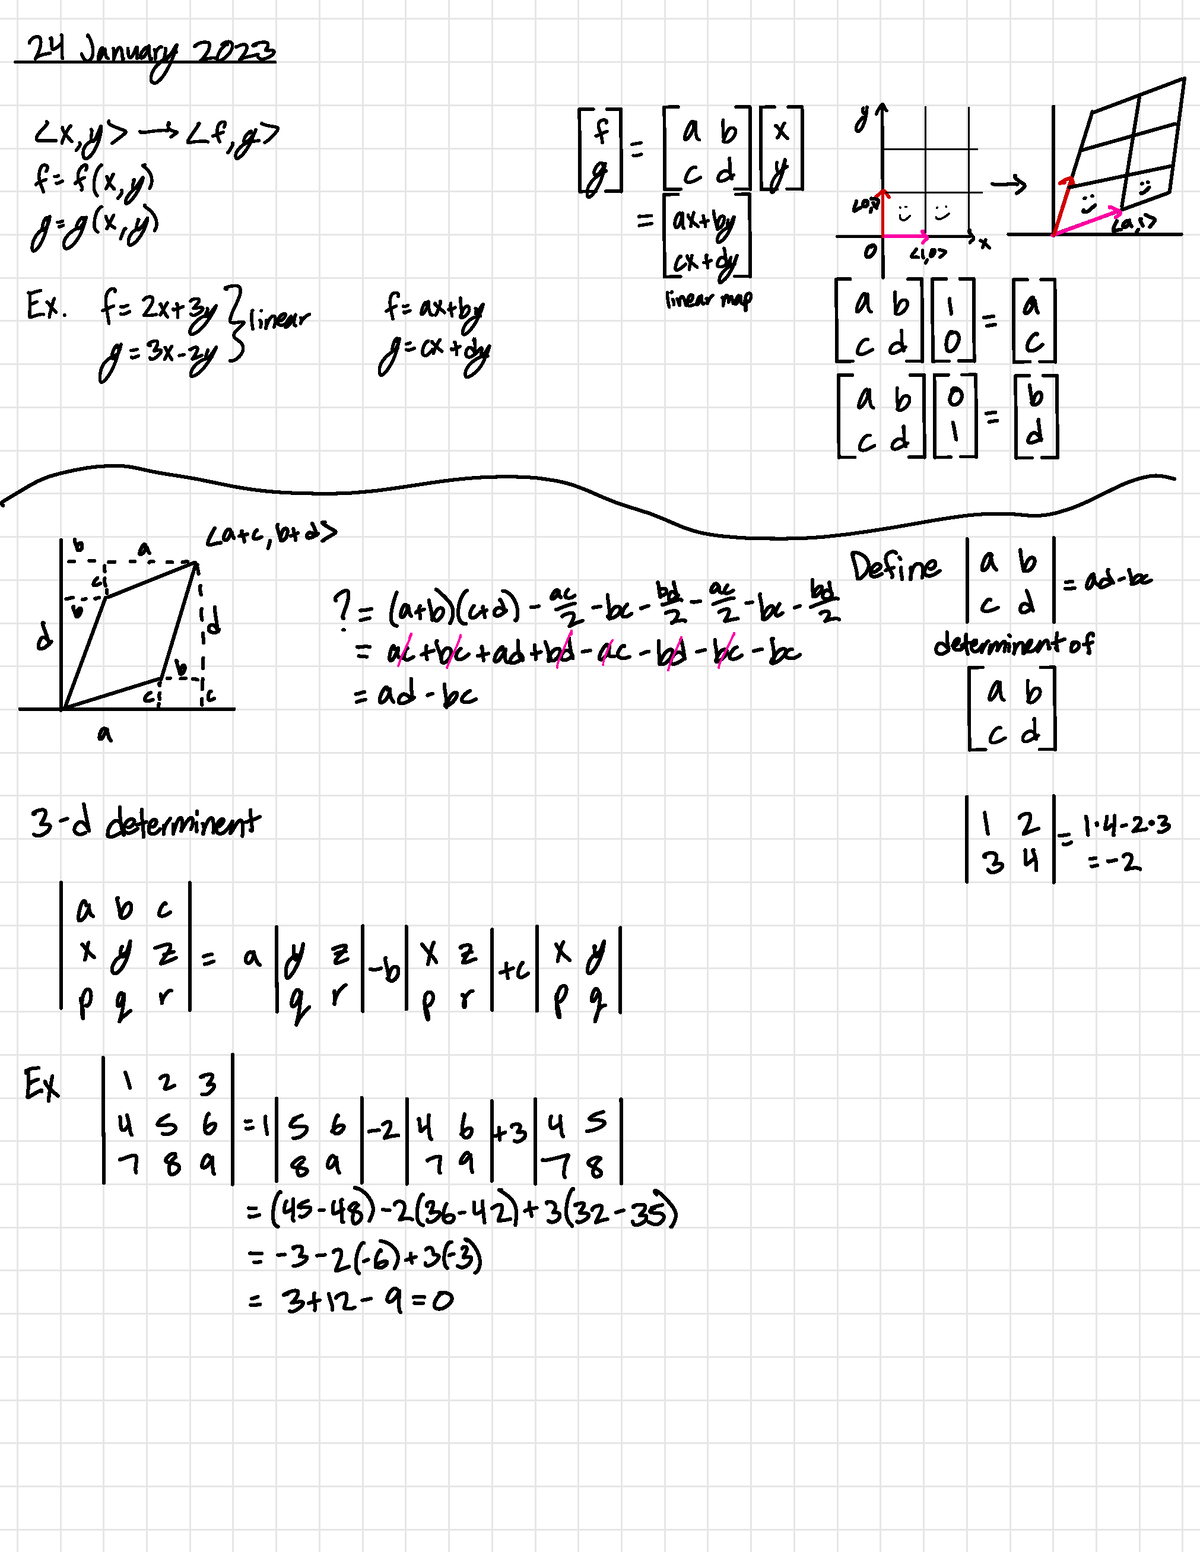 24 January 2023
<x,y> → <f,g>
f = f(x,y)
g = g(x,y)
Ex. f = 2x+3y } linear
g = 3x-2y
f = ax+by
g = cx+dy
[f g] = [a b c d] [x y]
= [ax+by cx+dy]
linear map
y
<0,1>
0
<1,0>
x
→
[a b c d] [1 0] = [a c]
[a b c d] [0 1] = [b d]
b a <a+c, b+d>
c
b
d
d
b
c
c
a
? = (a+b)(c+d) - ac/2 - bc - bd/2 - ac/2 - bc - bd/2
= ac+bc+ad+bd-ac-bd-bc-bc
= ad-bc
Define |a b c d| = ad-bc
determinent of
[a b c d]
|1 2 3 4| = 1·4-2·3
= -2
3-d determinent
|a b c
x y z
p q r| = a |y z q r| -b |x z p r| +c |x y p q|
Ex |1 2 3
4 5 6
7 8 9| = 1 |5 6 8 9| -2 |4 6 7 9| +3 |4 5 7 8|
= (45-48)-2(36-42)+3(32-35)
= -3-2(-6)+3(-3)
= 3+12-9=0